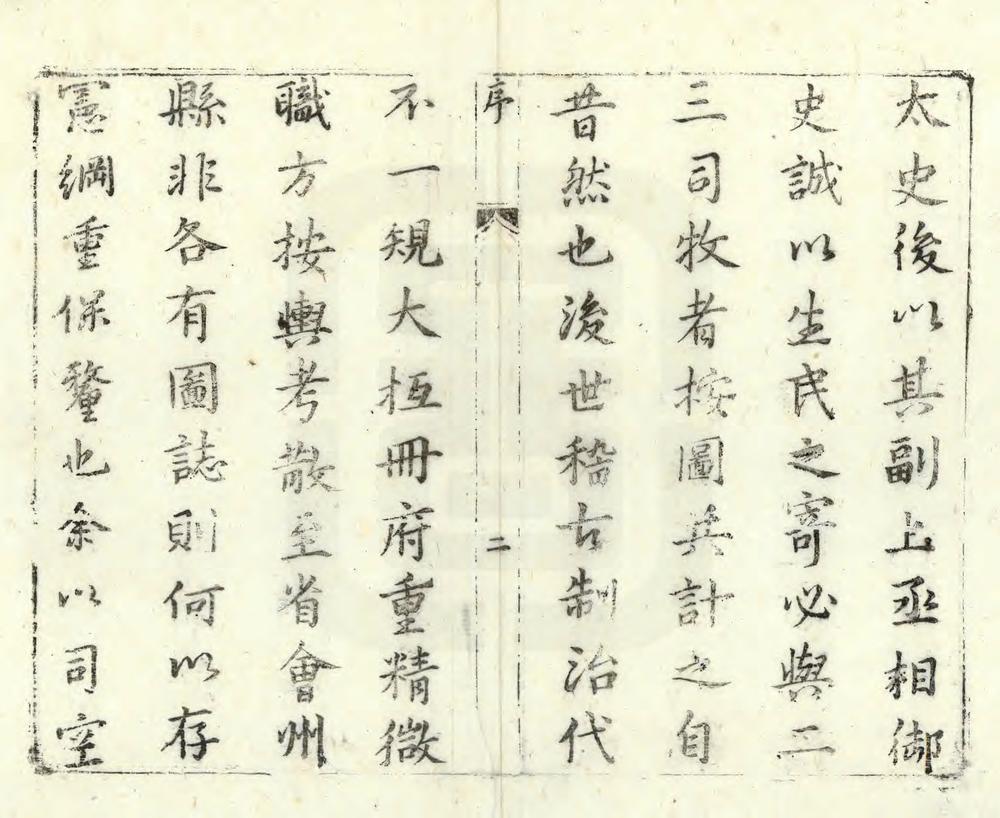 太史後以其副上丞相御
史誠以生民之寄必與二
三司牧者按圖共計之自
昔然也後世稽古制治代
序 二
不一規大抵冊府重精微
職方按輿考散至省會州
縣非各有圖誌則何以存
憲綱重保釐也余以司空